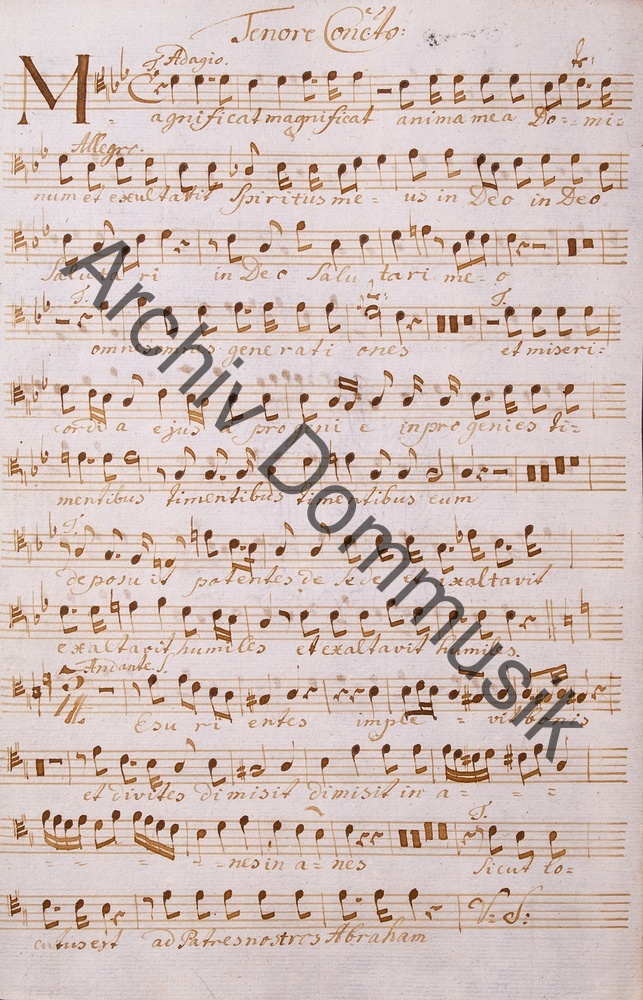 Tenore Conc:to:
Adagio. T. tr:
Magnificat magnificat anima mea Do = mi =
Allegro.
num et exultavit Spiritus me = us in Deo in Deo
Saluta ri in Deo Salu tari me = o
T. T.
omnes omnes generati ones et miseri =
cordi a ejus a progeni e in progenies ti =
mentibus timentibus timentibus eum
T.
deposu it potentes de sede et exaltavit
exaltavit humiles et exaltavit humiles.
Andante. S.
Esu ri entes imple = vit bonis
et divites dimisit dimisit in a = = =
T.
= = = = nes in a = nes Sicut lo =
cutus est ad Patres nostros Abraham V: S:
Archiv Dommusik